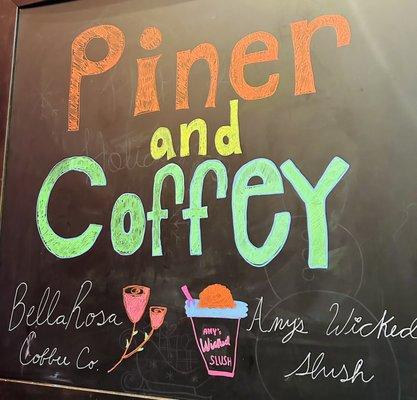 Piner
and
Coffey
BellaRosa
Coffee Co.
AMY'S
Wicked
SLUSH
Amy's Wicked
Slush